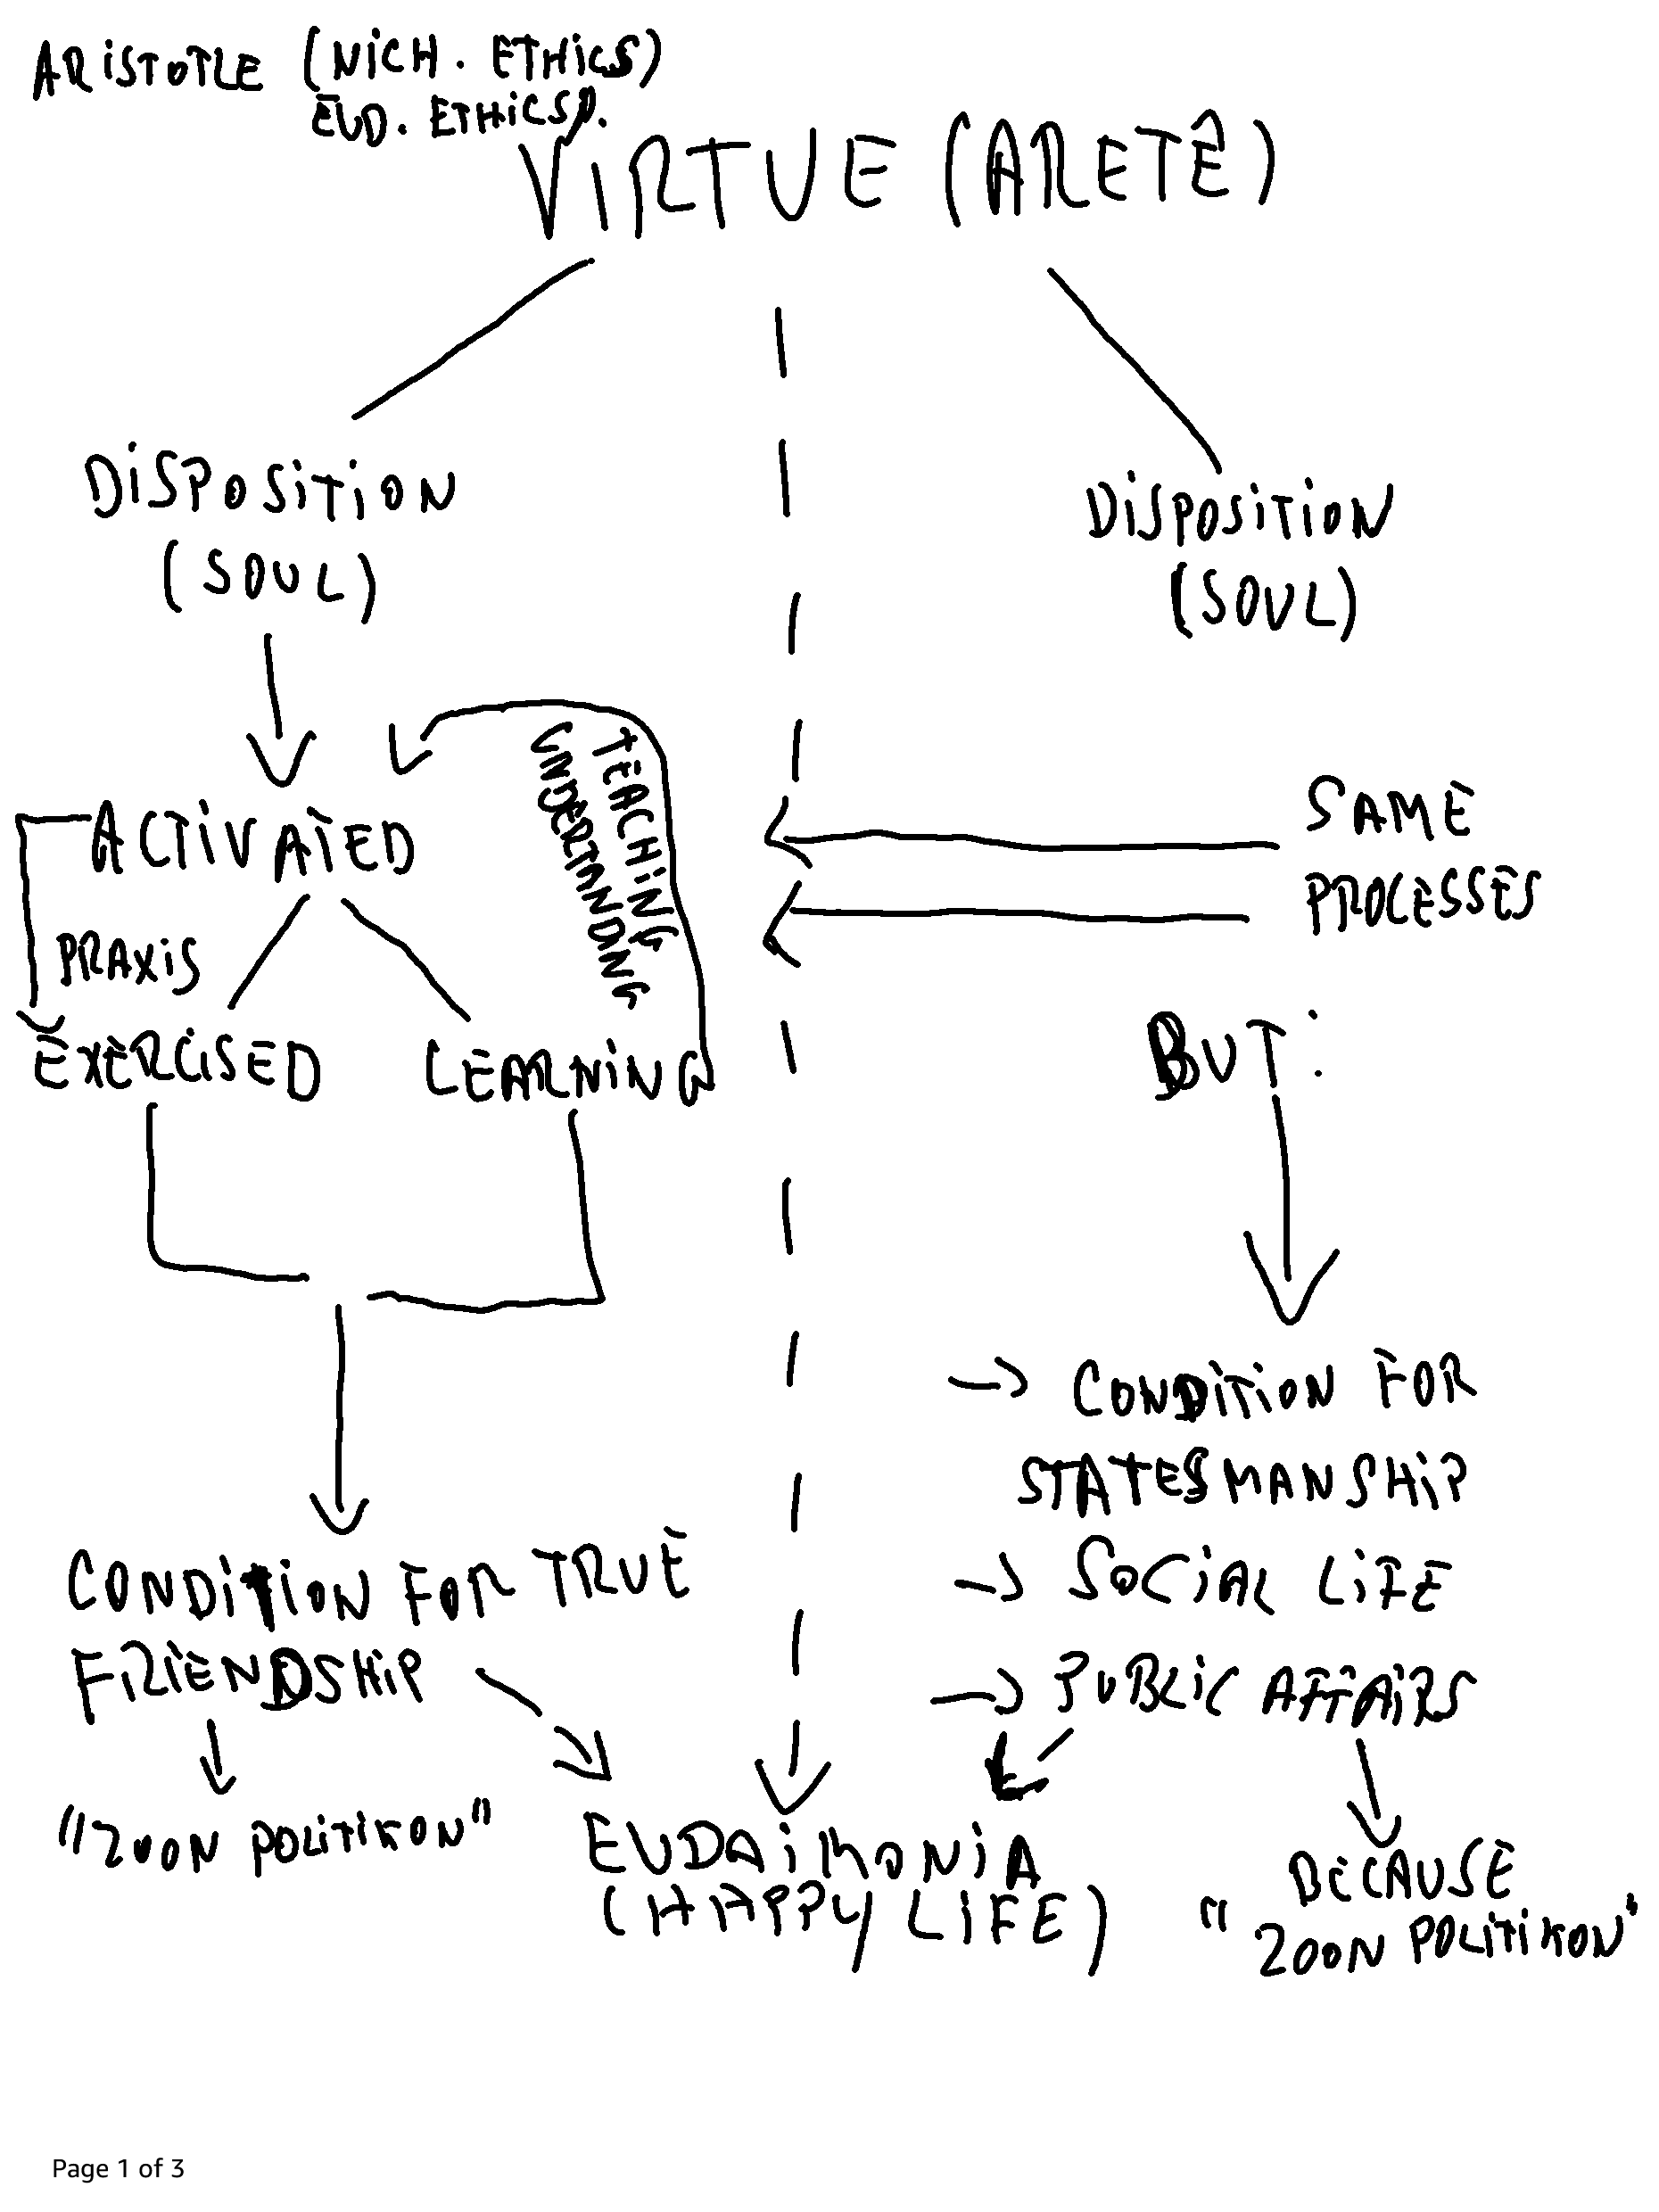 ARISTOTLE (NICH. ETHICS)
EUD. ETHICS).
VIRTUE (ARETÊ)
DISPOSITION
(SOUL)
DISPOSITION
(SOUL)
ACTIVATED
TEACHING
UNDERTANDING
PRAXIS
EXERCISED
LEARNING
SAME
PROCESSES
BUT:
CONDITION FOR TRUE
FRIENDSHIP
"ZOON POLITIKON"
→ CONDITION FOR
STATESMANSHIP
→ SOCIAL LIFE
→ PUBLIC AFFAIRS
EUDAIMONIA
(HAPPY LIFE)
BECAUSE
"ZOON POLITIKON"
Page 1 of 3